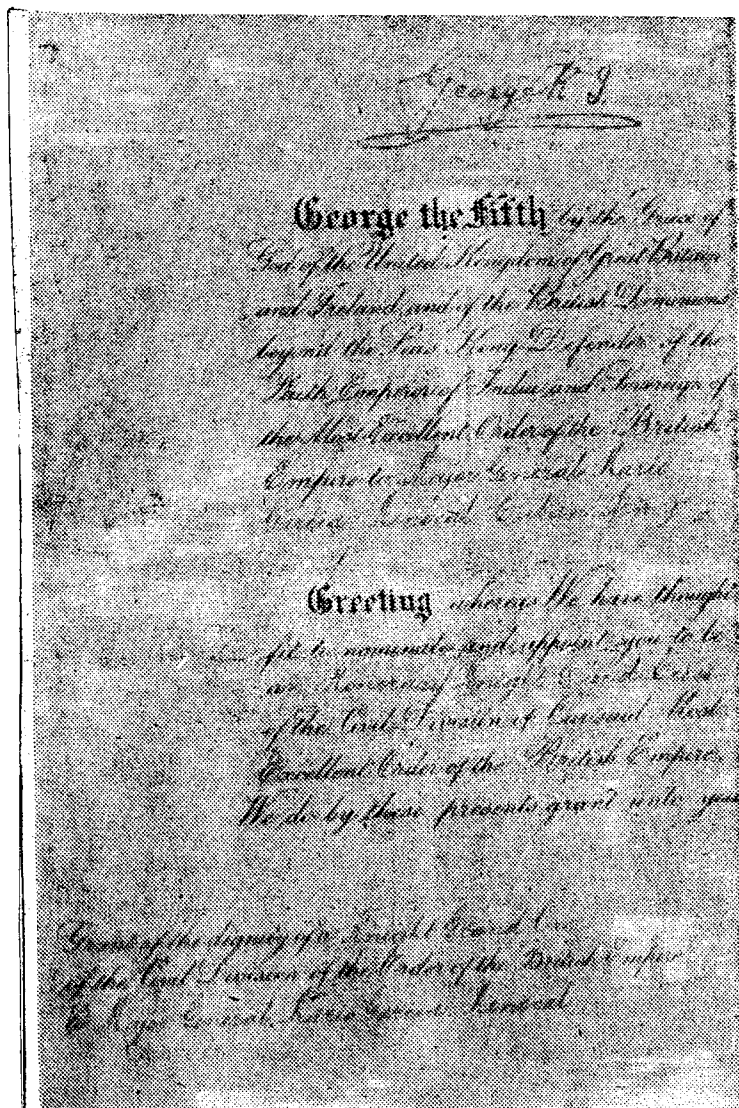 George R I
George the Fifth by the Grace of
God of the United Kingdom of Great Britain
and Ireland and of the British Dominions
beyond the Seas King Defender of the
Faith Emperor of India and Sovereign of
the Most Excellent Order of the British
Empire to Major General Mario
García Menocal
Greeting whereas We have thought
fit to nominate and appoint you to be
an Honorary Knight Grand Cross
of the Civil Division of Our said Most
Excellent Order of the British Empire
We do by these presents grant unto you
Grant of the dignity of a Knight Grand Cro
of the Civil Division of the Order of the British Empire
to Major General Mario García Menocal